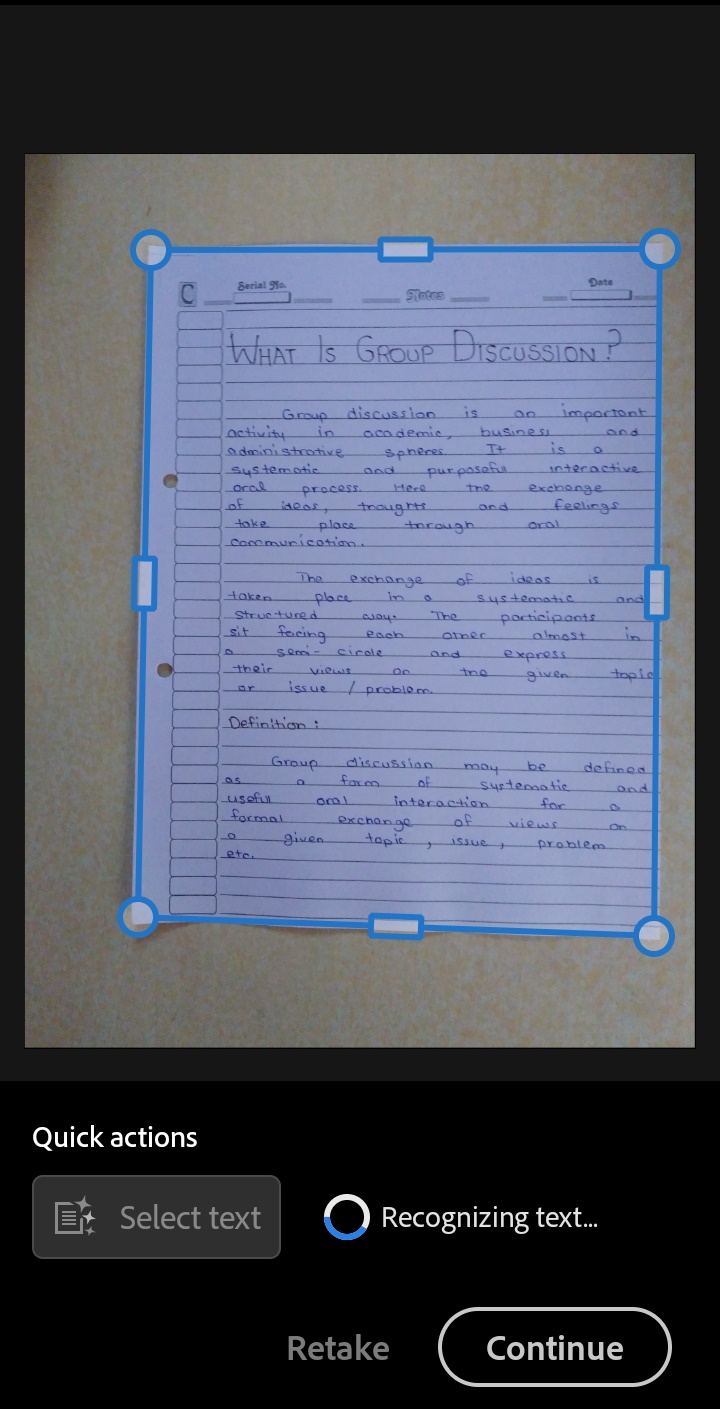 C
Serial No.
Notes
Date
WHAT IS GROUP DISCUSSION?
Group discussion is an important
activity in academic, business and
administrative spheres. It is a
systematic and purposeful interactive
oral process. Here the exchange
of ideas, thoughts and feelings
take place through oral
communication.
The exchange of ideas is
taken place in a systematic and
structured way. The participants
sit facing each other almost in
a semi-circle and express
their views on the given topic
or issue / problem.
Definition :
Group discussion may be defined
as a form of systematic and
useful oral interaction for a
formal exchange of views on
a given topic, issue, problem
etc.
Quick actions
Select text
Recognizing text...
Retake
Continue